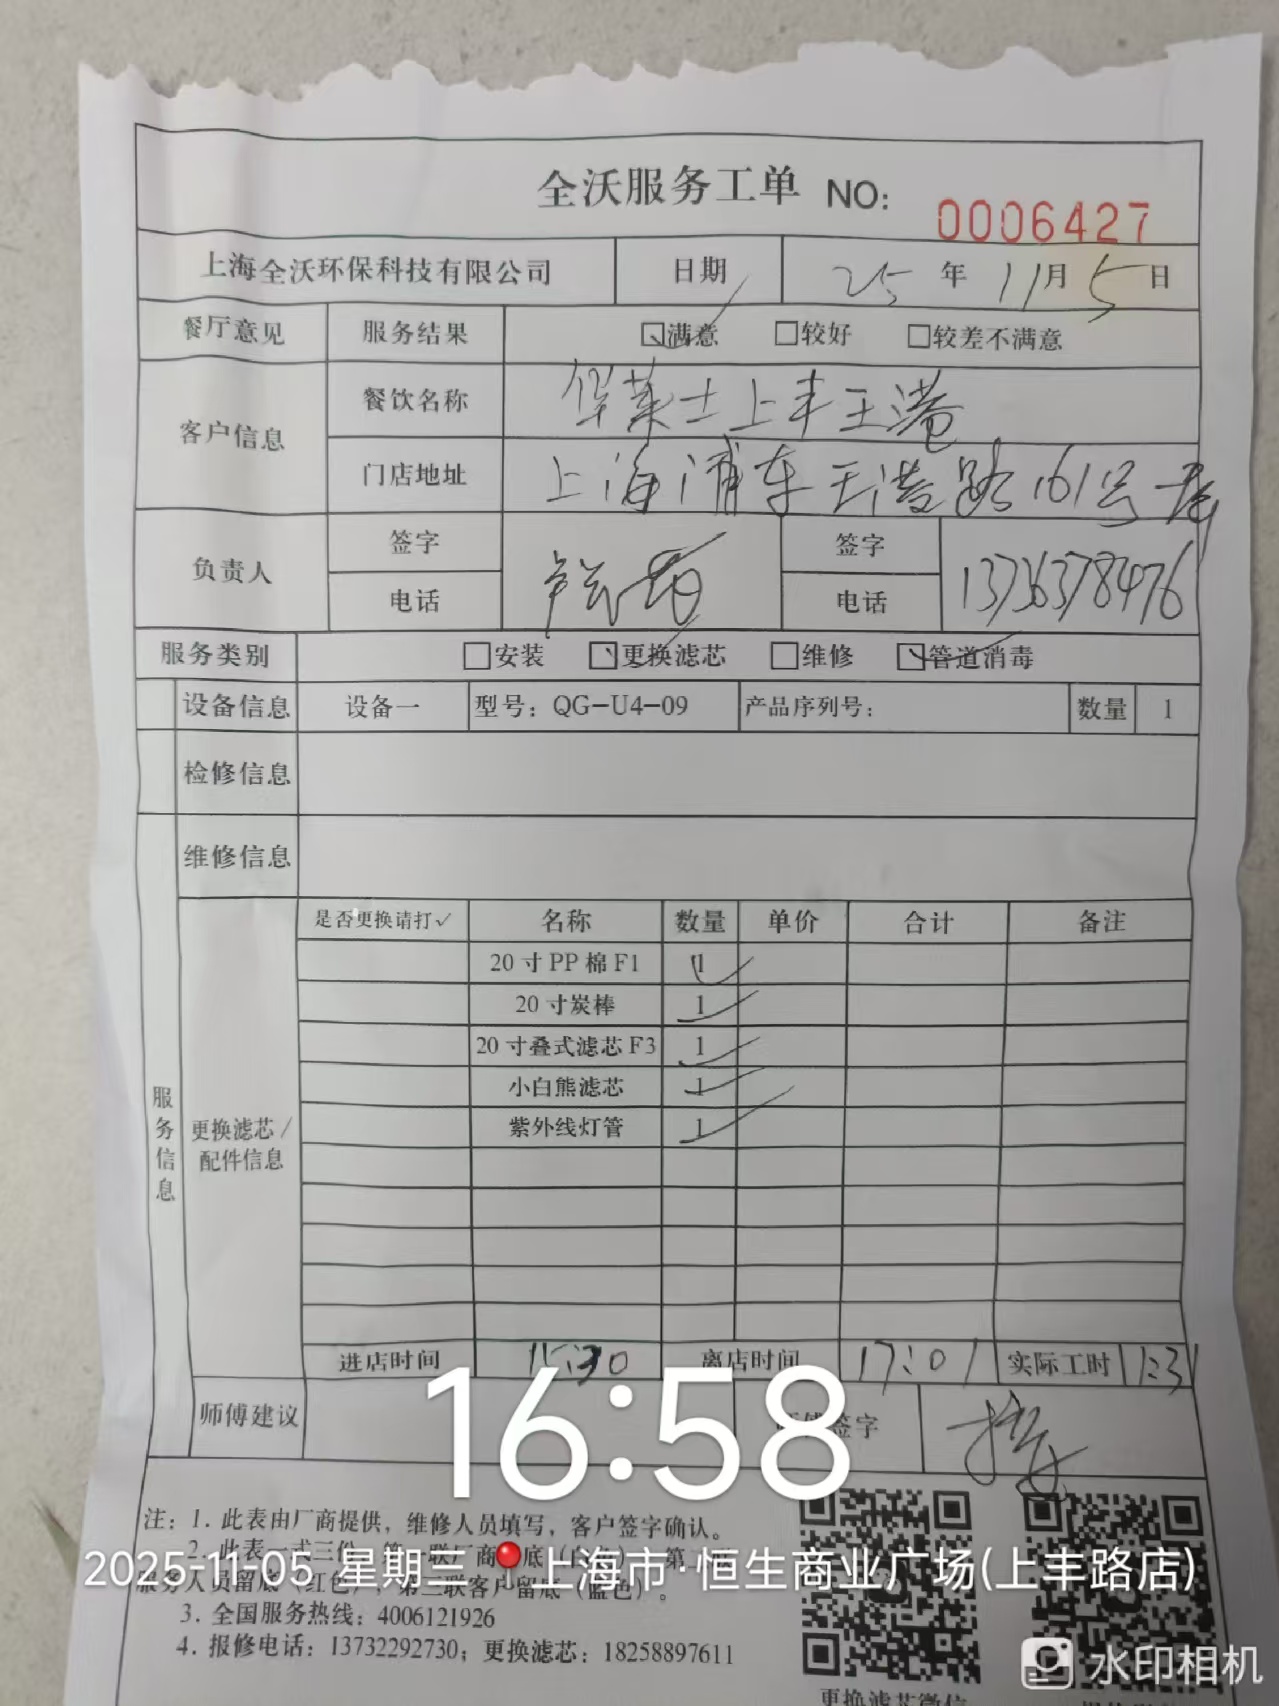 全沃服务工单 NO: 0006427
上海全沃环保科技有限公司 日期 25 年 11月 5 日
餐厅意见 服务结果 满意 较好 较差不满意
客户信息 餐饮名称 华莱士上丰王港
门店地址 上海浦东王港路161号
负责人 签字 签字
电话 电话 13736378476
服务类别 安装 更换滤芯 维修 管道消毒
设备信息 设备一 型号：QG-U4-09 产品序列号： 数量 1
检修信息
维修信息
服务信息
更换滤芯/
配件信息
是否更换请打✓ 名称 数量 单价 合计 备注
20寸PP棉F1 1
20寸炭棒 1
20寸叠式滤芯F3 1
小白熊滤芯 1
紫外线灯管 1
进店时间 15:30 离店时间 17:01 实际工时 1:31
师傅建议 签字
16:58
注：1. 此表由厂商提供，维修人员填写，客户签字确认。
2. 此表一式三份，第一联厂商 底
2025-11-05 星期三 上海市·恒生商业广场(上丰路店)
服务人员留底（红色） 第三联客户留底（蓝色）。
3. 全国服务热线：4006121926
4. 报修电话：13732292730；更换滤芯：18258897611
更换滤芯微信
水印相机